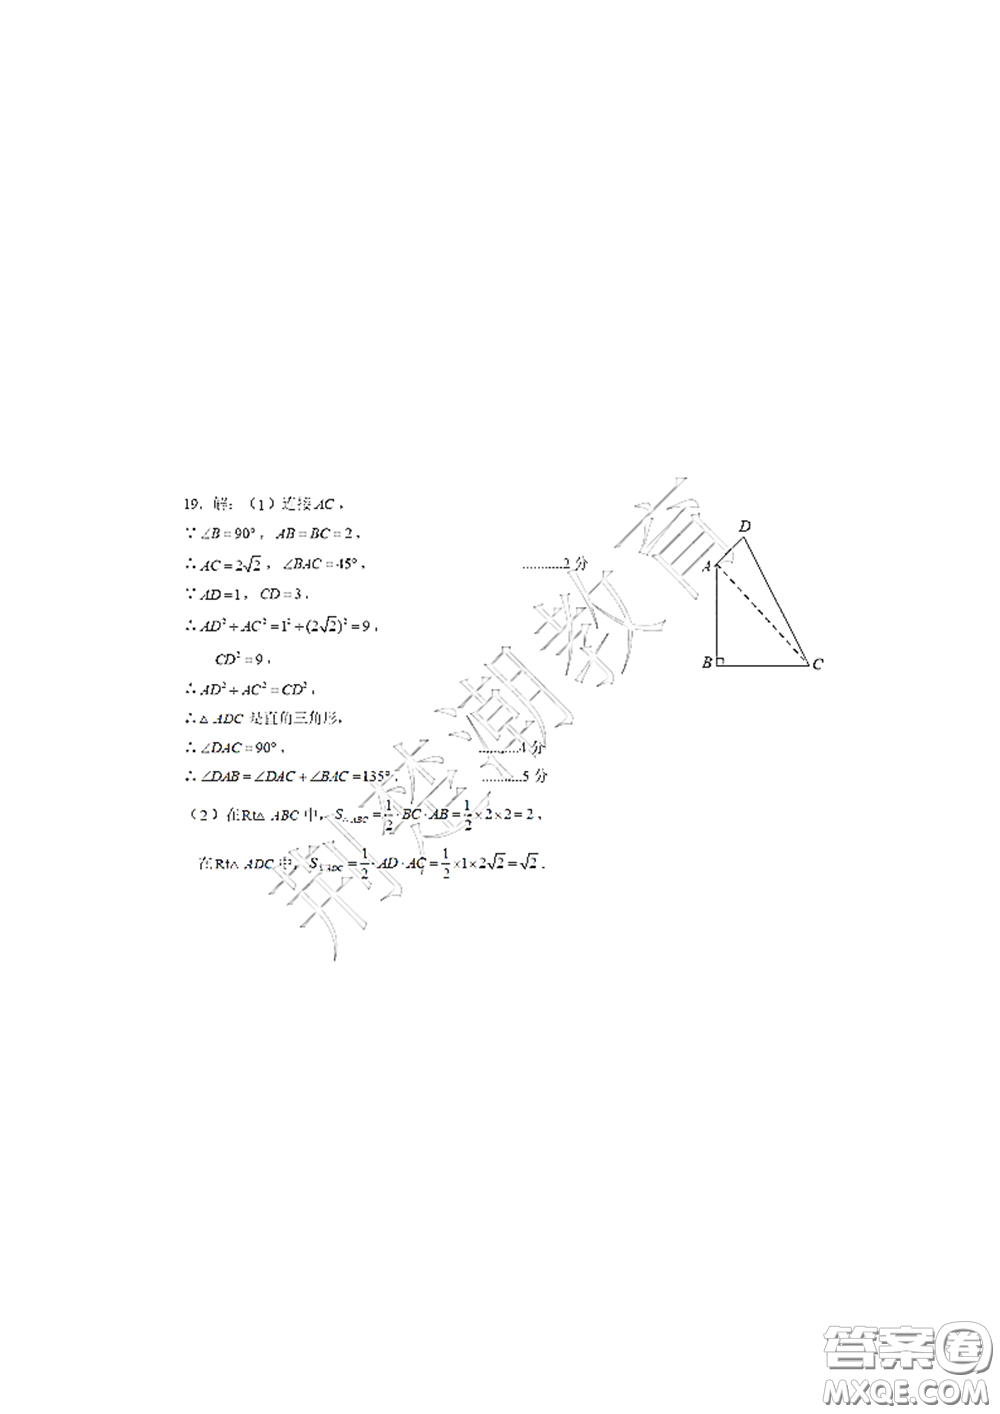 19. 解：（1）连接 AC，
∵ ∠B＝90°，AB＝BC＝2，
∴ AC＝2√2，∠BAC＝45°， ...........2 分
∵ AD＝1，CD＝3，
∴ AD²＋AC²＝1²＋(2√2)²＝9，
CD²＝9，
∴ AD²＋AC²＝CD²，
∴ △ ADC 是直角三角形，
∴ ∠DAC＝90°， ...........4 分
∴ ∠DAB＝∠DAC＋∠BAC＝135°． ...........5 分
（2）在Rt△ ABC 中，S△ABC＝1/2·BC·AB＝1/2×2×2＝2，
在Rt△ ADC 中，S△ADC＝1/2·AD·AC＝1/2×1×2√2＝√2．
D
A
B
C
荆楚潮教育
答案圈
MXQE.COM